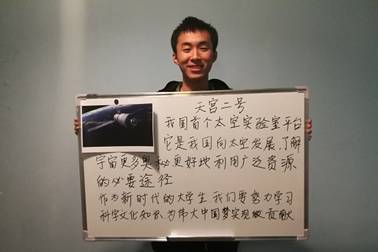 天宫二号
我国首个太空实验室平台
它是我国向太空发展、了解
宇宙更多奥秘更好地利用广泛资源
的必要途径
作为新时代的大学生 我们要努力学习
科学文化知识 为伟大中国梦实现做贡献